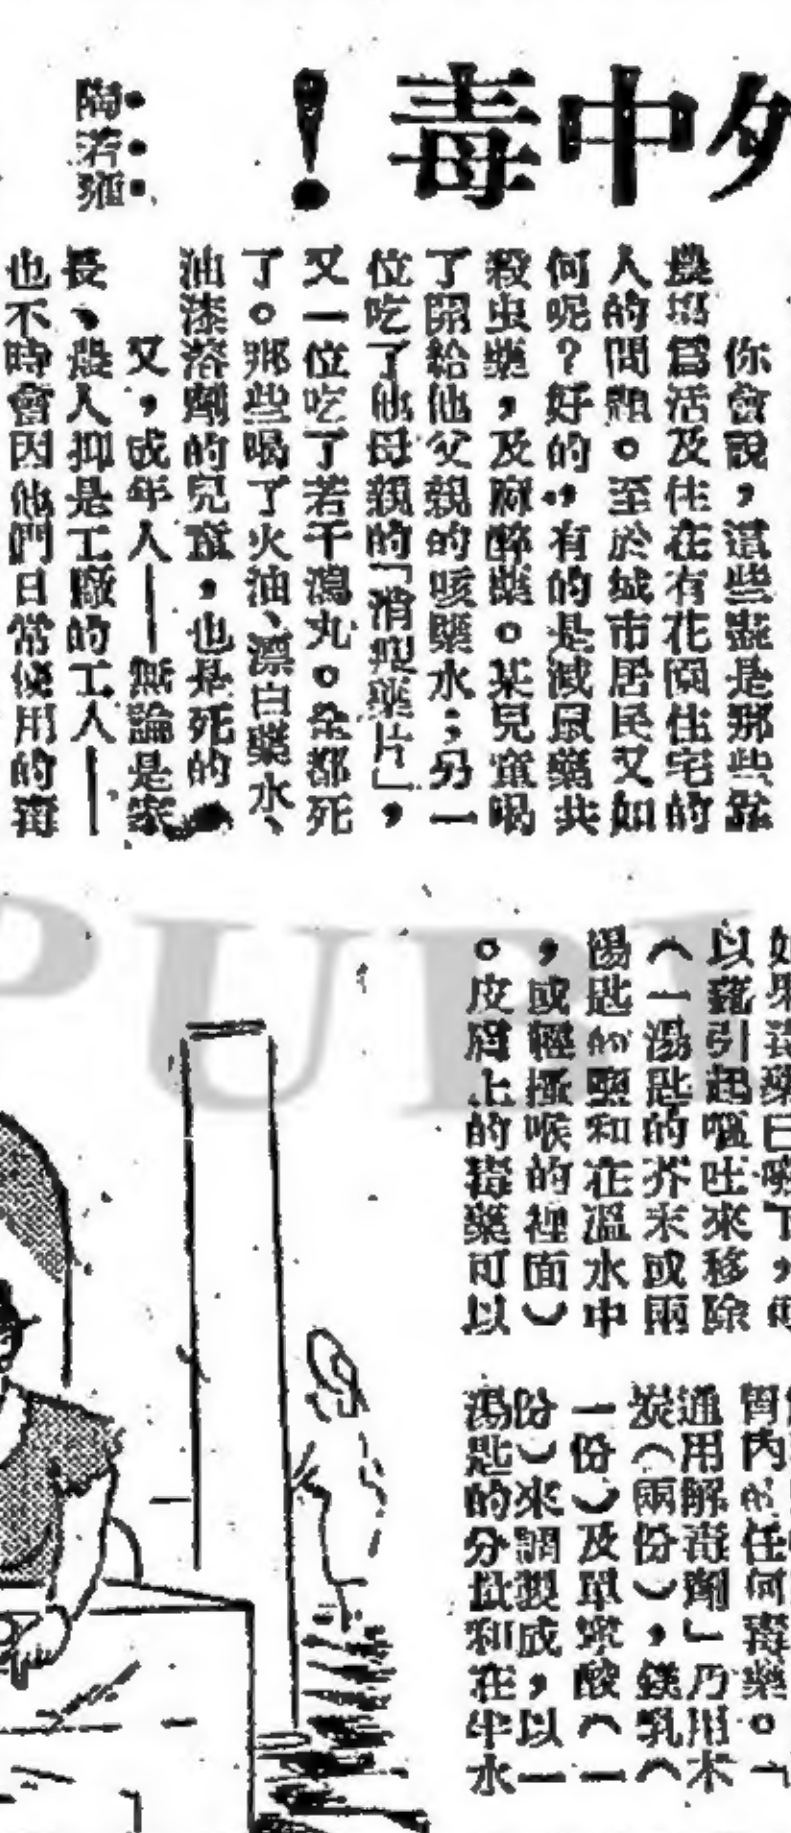 外中毒！
陶若
你會說，這些盡是那些靠
農場為活及住在有花園住宅的
人的問題。至於城市居民又如
何呢？好的，有的是滅鼠藥共
殺虫藥，及麻醉藥。某兒童喝
了開給他父親的咳藥水；另一
位吃了他母親的「消瘦藥片」，
又一位吃了若干瀉丸。全都死
了。那些喝了火油、漂白藥水、
油漆溶劑的兒童，也是死的
又，成年人——無論是家
長、農人抑是工廠的工人——
也不時會因他們日常使用的毒
如果毒藥已嚥下，可
以藉引起嘔吐來移除
（一湯匙的芥末或兩
湯匙的鹽和在溫水中
，或輕搔喉的裡面）
。皮膚上的毒藥可以
胃內的任何毒藥。「
通用解毒劑」乃用木
炭（兩份），鎂乳（
一份）及單寧酸（一
份）來調製成，以一
湯匙的分量和在半水